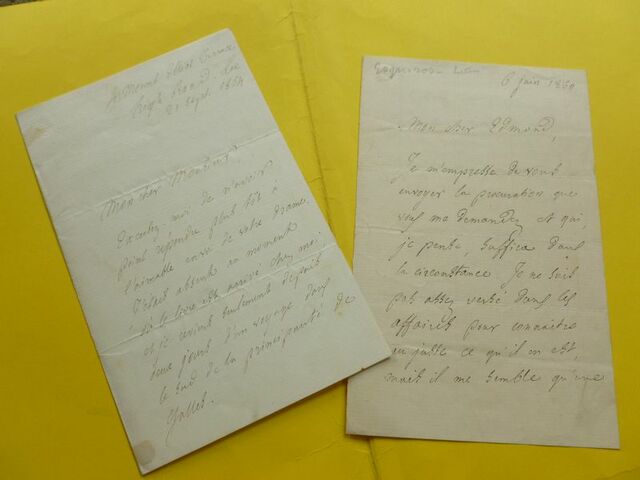 High Road, Lee
21 Sept. 1864
Mon cher Monsieur,
Excusez-moi de n'avoir
point répondu plus tôt à
l'aimable envoi de votre drame.
J'étais absent au moment
où le livre est arrivé chez moi
et je reviens seulement depuis
deux jours d'un voyage dans
le Sud de la principauté de
Galles.
6 juin 1860
Mon cher Edmond,
Je m'empresse de vous
envoyer la procuration que
vous me demandez et qui,
je pense, suffira dans
la circonstance. Je ne suis
pas assez versé dans les
affaires pour connaître
au juste ce qu'il en est,
mais il me semble qu'une